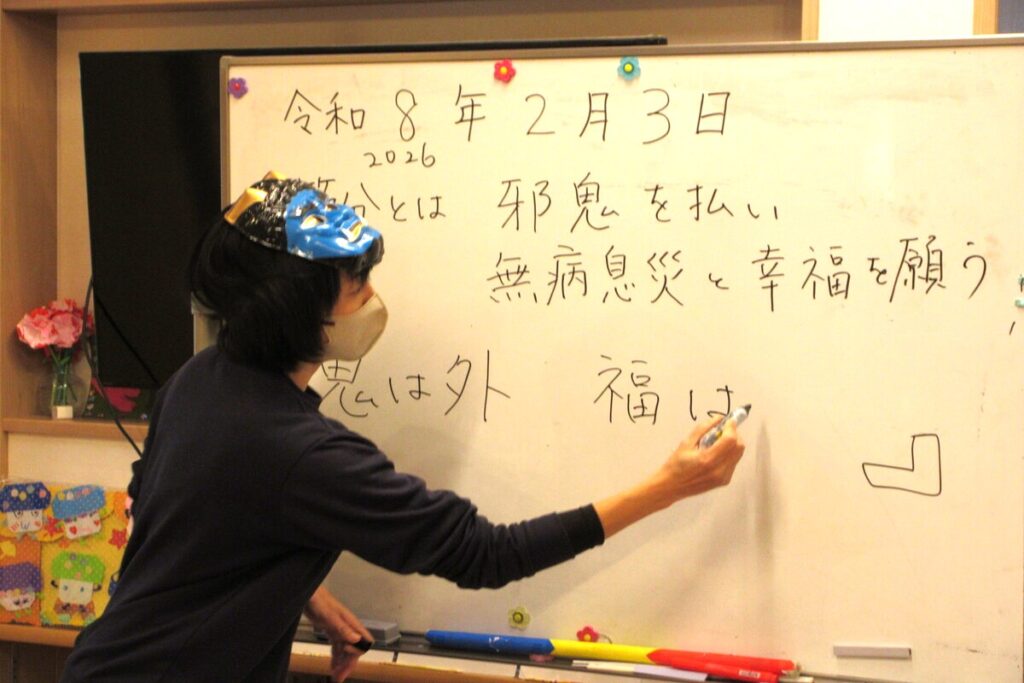 令和8年2月3日
2026
節分とは 邪鬼を払い
無病息災と幸福を願う
鬼は外 福は